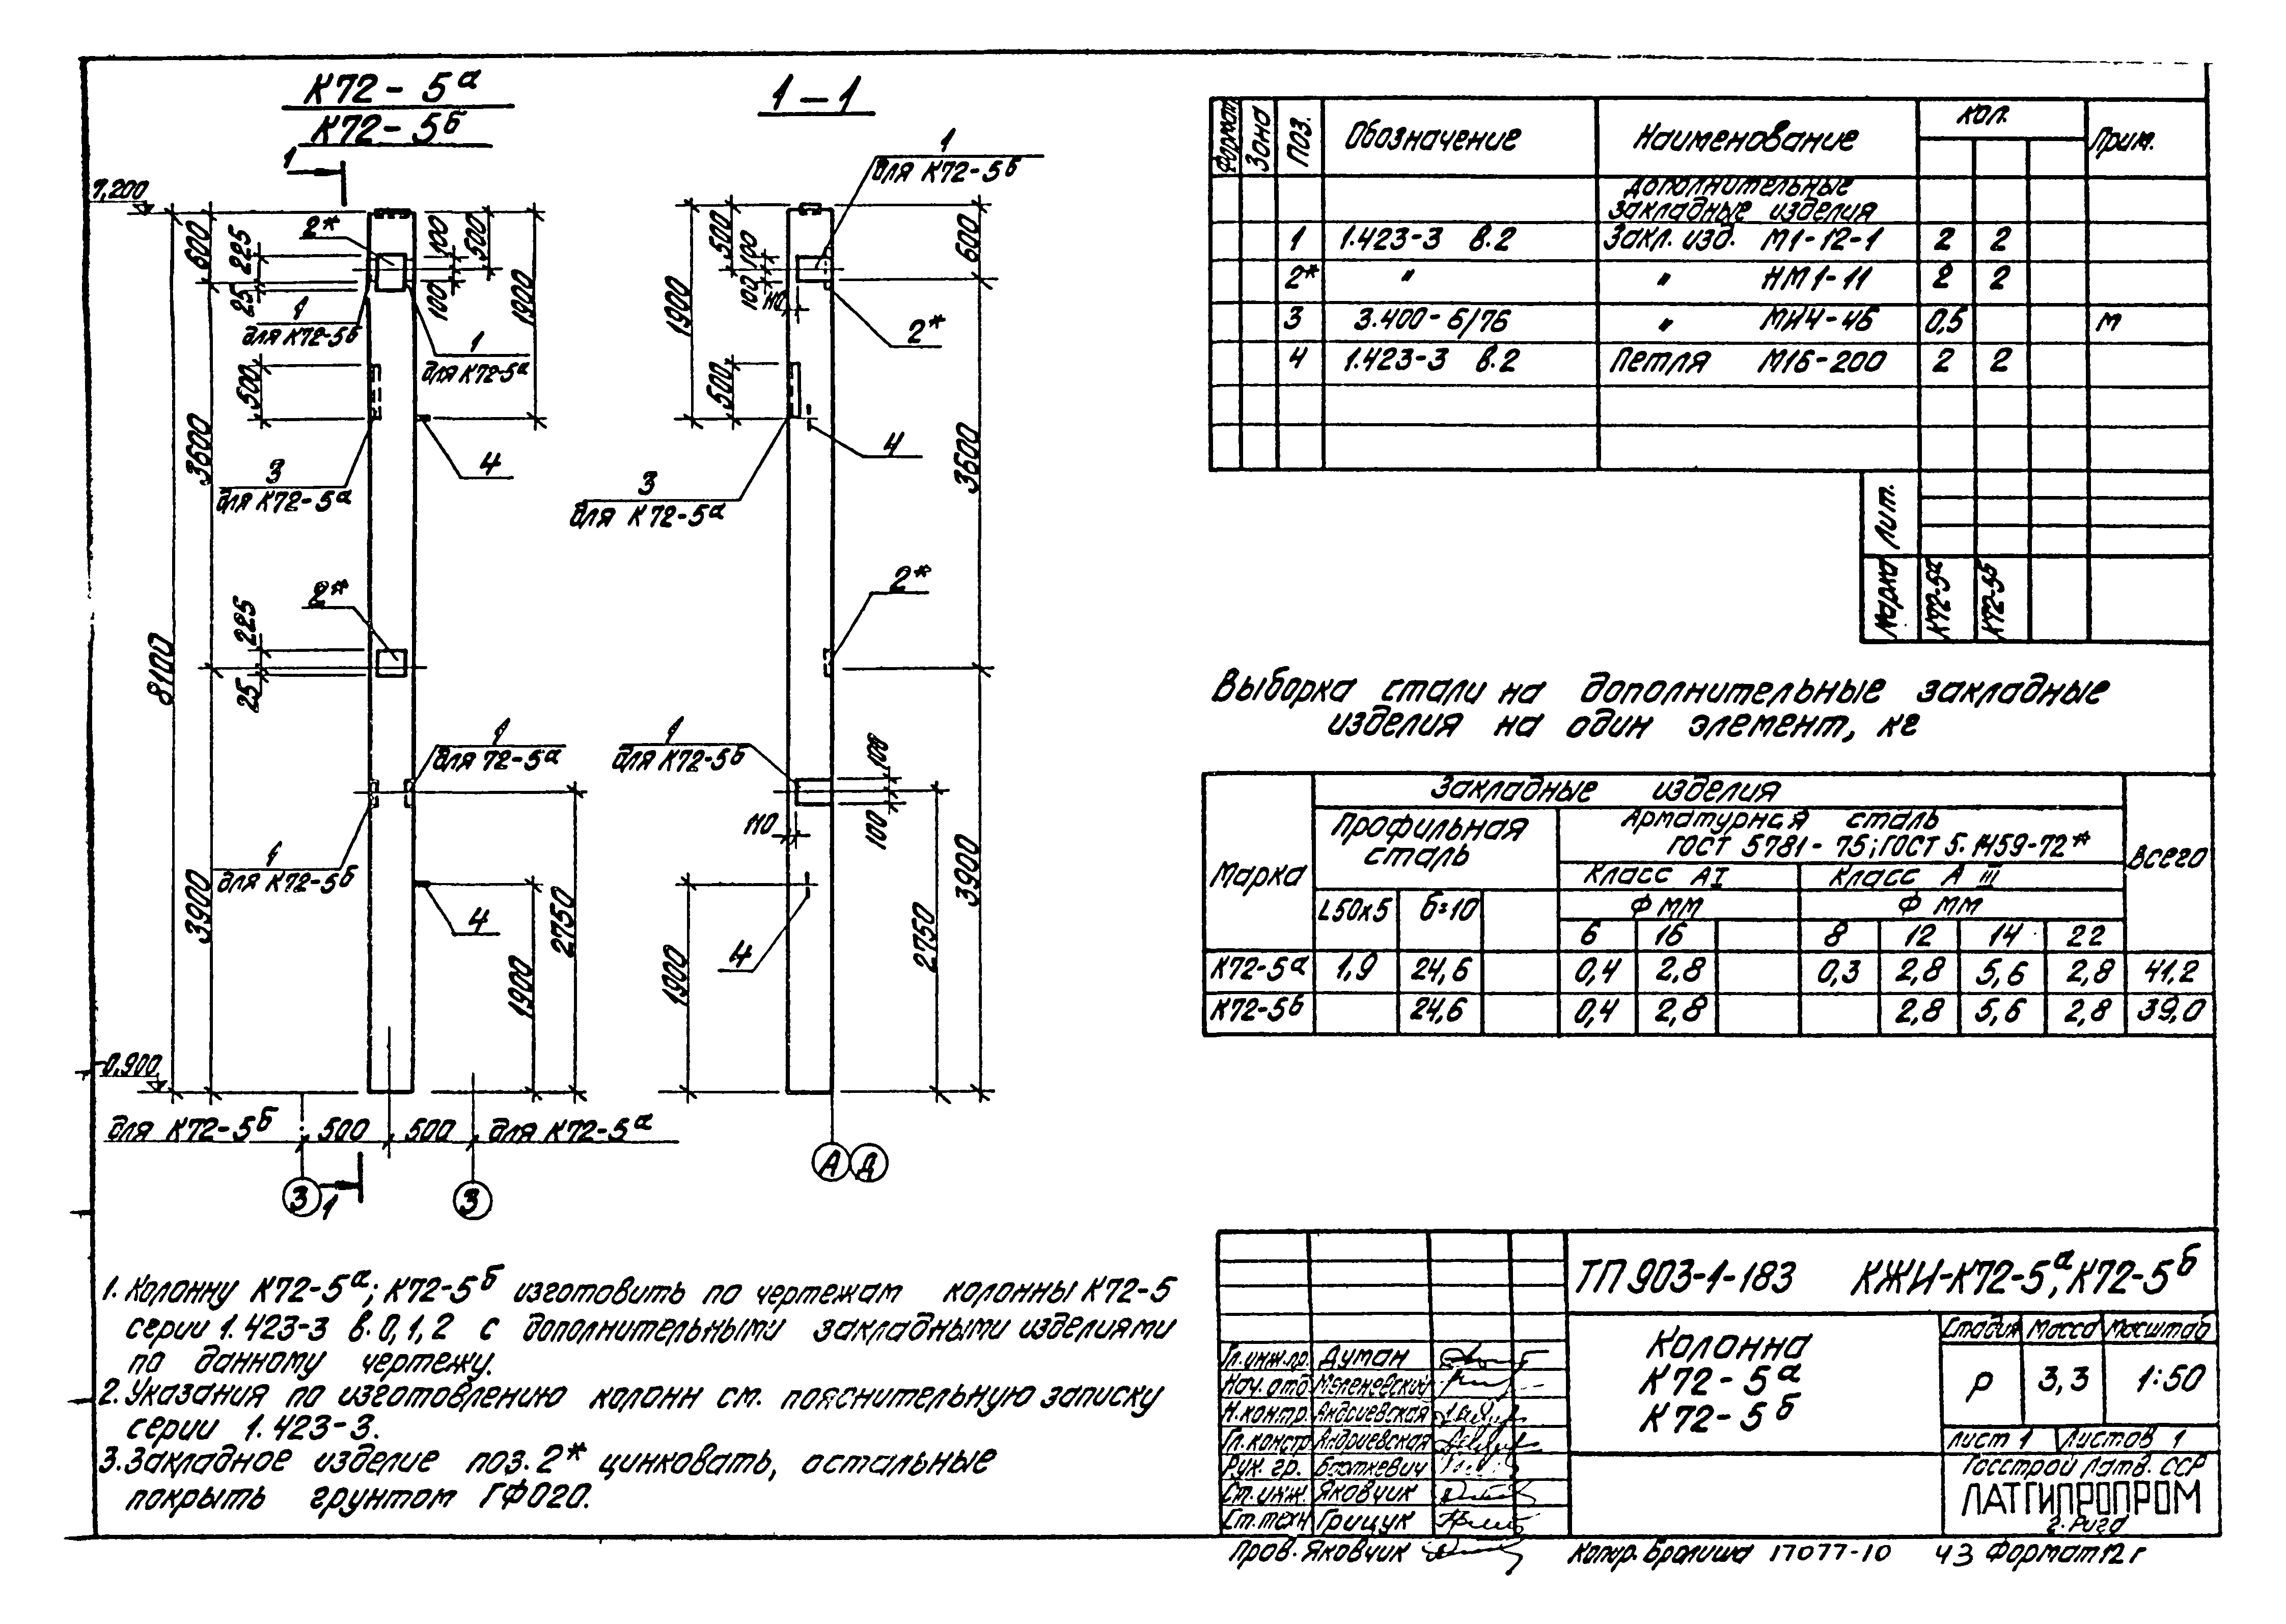 К72-5а
К72-5б
1
7,200
600
225
25
2*
100
100
500
1900
1
для К72-5б
1
для К72-5а
500
3600
3
для К72-5а
4
2*
225
25
8100
1
для 72-5а
1
для К72-5б
3900
4
1900
2750
-0,900
для К72-5б 500 500 для К72-5а
3
1
3
1-1
1
для К72-5б
500
100
100
110
600
1900
2*
500
4
3
для К72-5а
3600
2*
1
для К72-5б
100
100
110
3900
2750
4
1900
А Д
Формат Зона Поз. Обозначение Наименование Кол. Прим.
Дополнительные
закладные изделия
1 1.423-3 в.2 Закл. изд. М1-12-1 2 2
2* " " НМ1-11 2 2
3 3.400-6/76 " МИ4-4Б 0,5 м
4 1.423-3 в.2 Петля М16-200 2 2
Лит.
Марка К72-5а К72-5б
Выборка стали на дополнительные закладные
изделия на один элемент, кг
Марка Закладные изделия Всего
Профильная сталь
Арматурная сталь
ГОСТ 5781-75; ГОСТ 5.1459-72*
Класс АI Класс АIII
L50х5 δ=10 Ф мм Ф мм
6 16 8 12 14 22
К72-5а 1,9 24,6 0,4 2,8 0,3 2,8 5,6 2,8 41,2
К72-5б 24,6 0,4 2,8 2,8 5,6 2,8 39,0
1. Колонну К72-5а; К72-5б изготовить по чертежам колонны К72-5
серии 1.423-3 в.0,1,2 с дополнительными закладными изделиями
по данному чертежу.
2. Указания по изготовлению колонн см. пояснительную записку
серии 1.423-3.
3. Закладное изделие поз. 2* цинковать, остальные
покрыть грунтом ГФ020.
ТП 903-1-183 КЖИ-К72-5а, К72-5б
Колонна
К72-5а
К72-5б
Стадия Масса Масштаб
Р 3,3 1:50
Лист 1 Листов 1
Госстрой Латв. ССР
ЛАТГИПРОПРОМ
г. Рига
Гл.инж.пр. Думан
Нач. отд Меленевский
Н.контр. Андриевская
Гл.констр Андриевская
Рук. гр. Борткевич
Ст.инж. Яковчик
Ст.техн Грицук
Пров. Яковчик
Копир. Бралиша 17077-10 43 Формат 12г